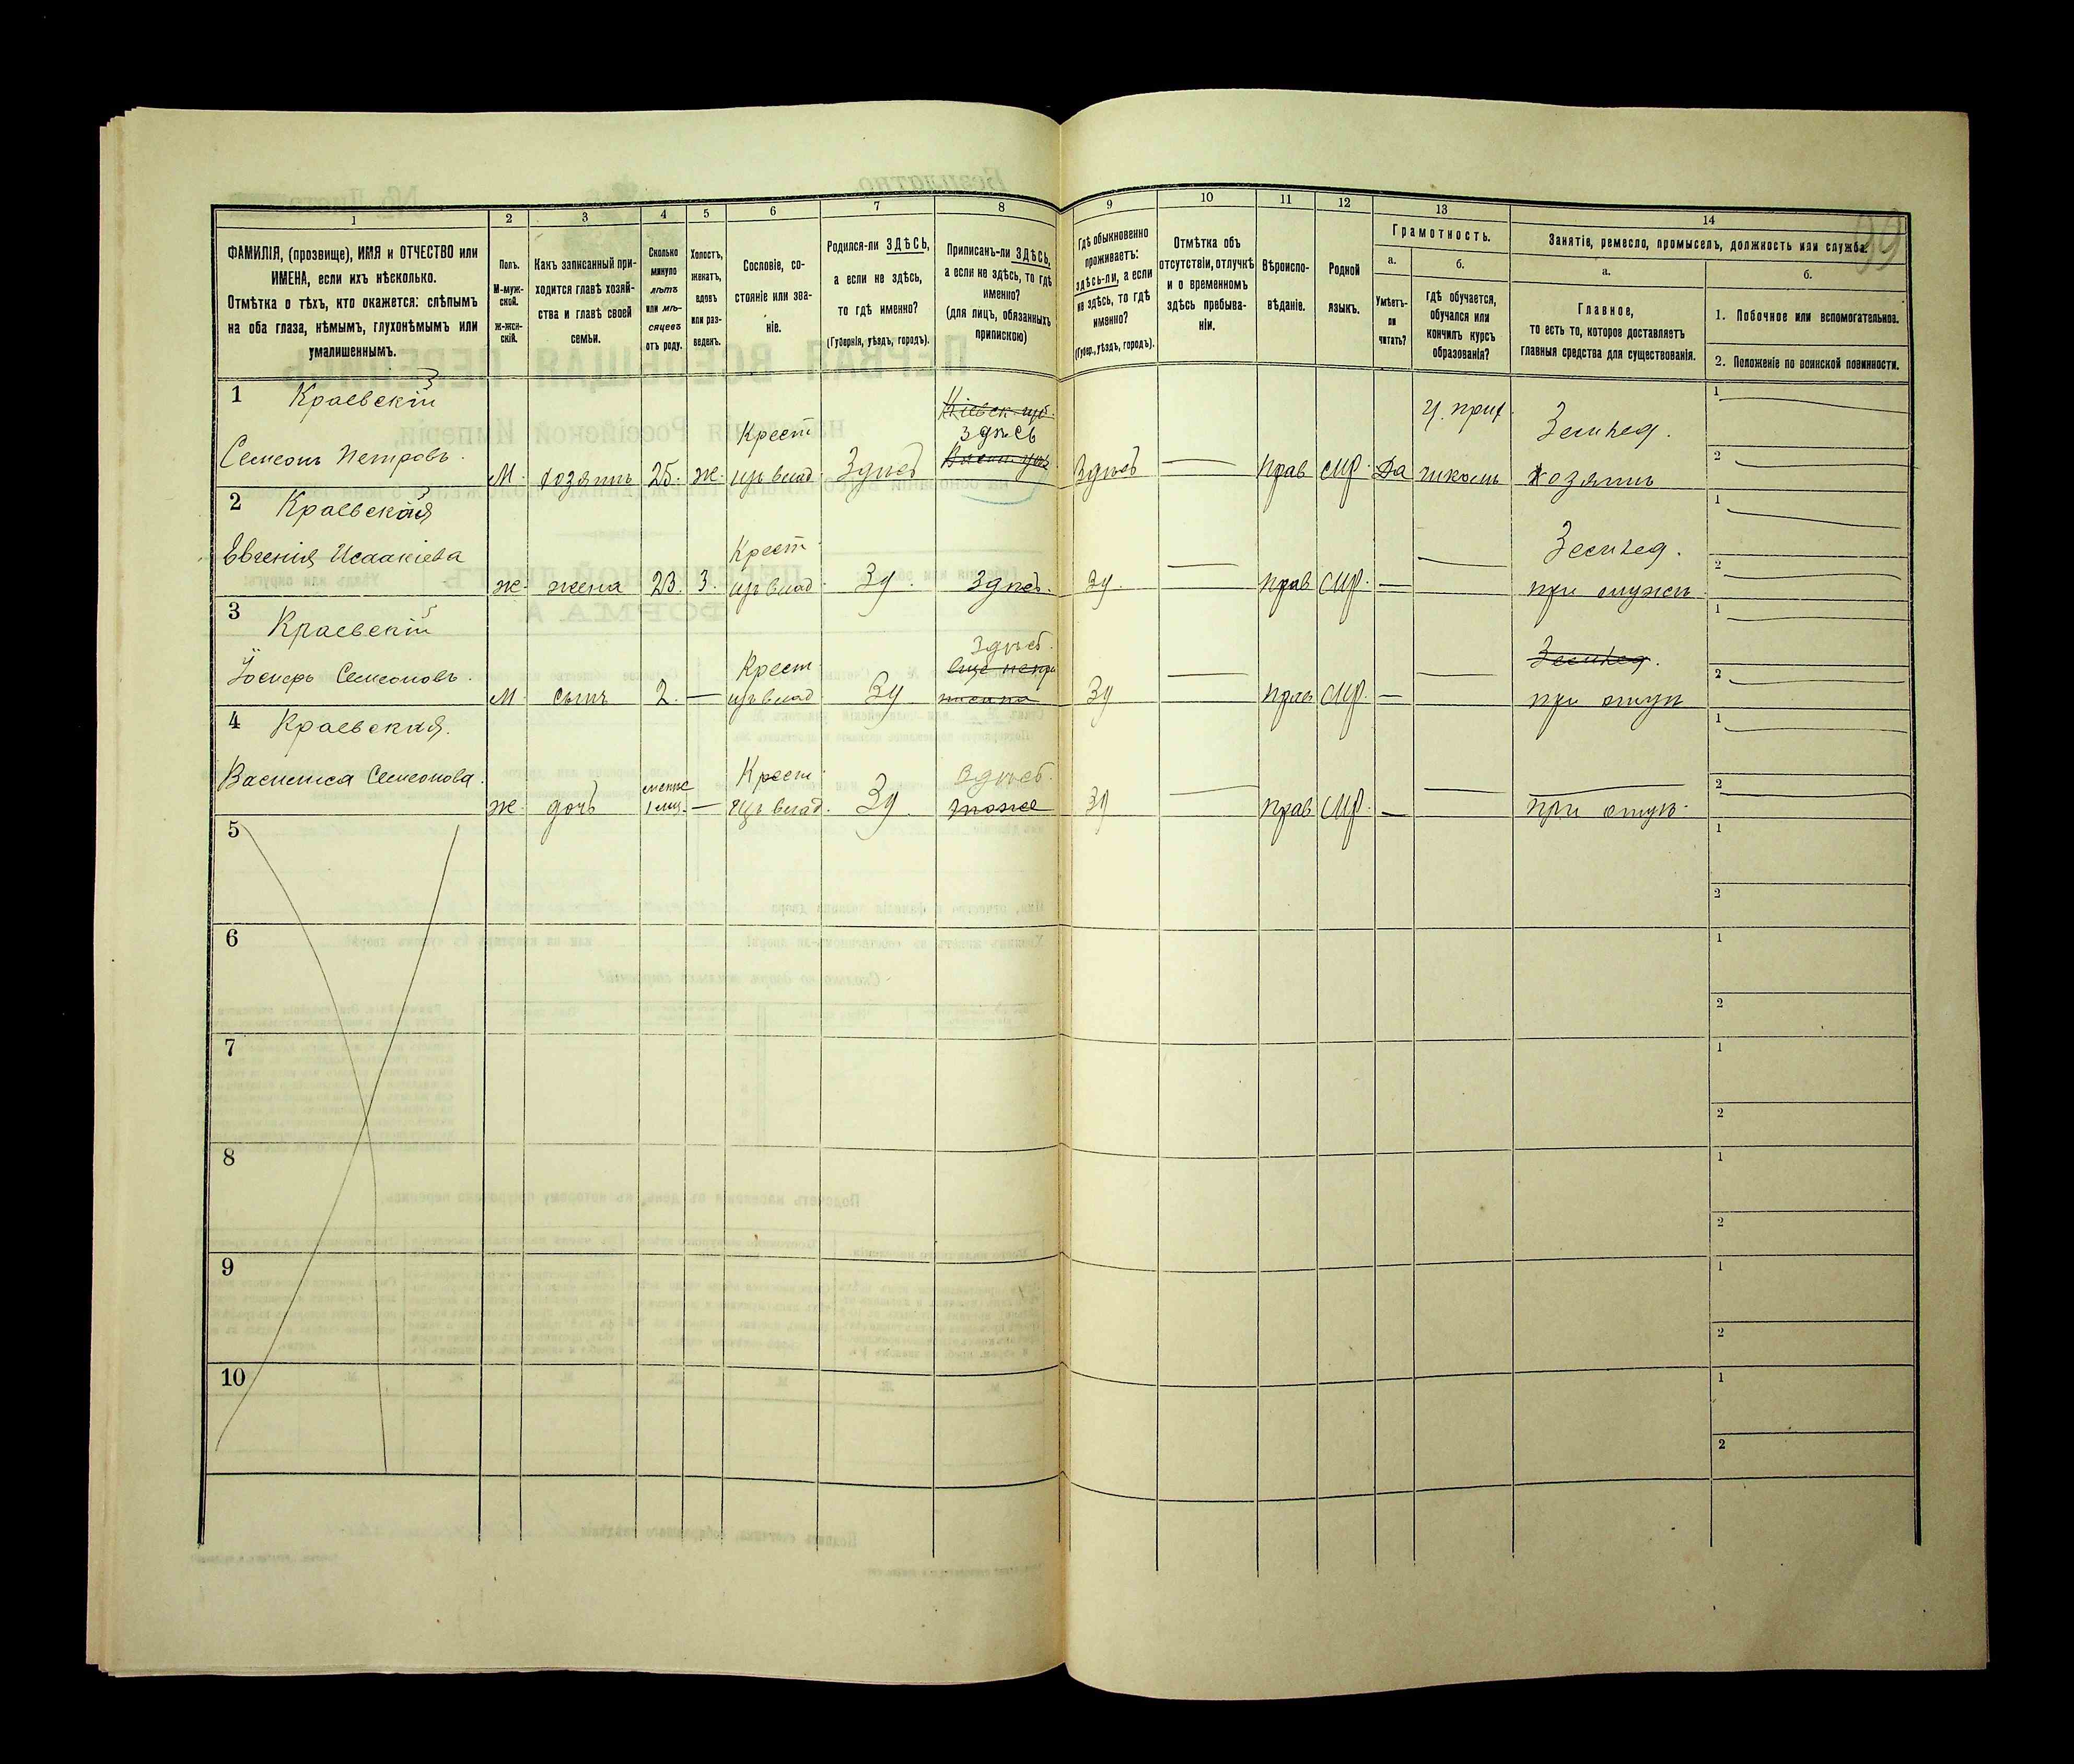 99
1 2 3 4 5 6 7 8 9 10 11 12 13 14
ФАМИЛІЯ, (прозвище), ИМЯ и ОТЧЕСТВО или
ИМЕНА, если ихъ нѣсколько.
Отмѣтка о тѣхъ, кто окажется: слѣпымъ
на оба глаза, нѣмымъ, глухонѣмымъ или
умалишеннымъ.
Полъ.
М-муж-
ской.
ж-жен-
скій.
Какъ записанный при-
ходится главѣ хозяй-
ства и главѣ своей
семьи.
Сколько
минуло
лѣтъ
или мѣ-
сяцевъ
отъ роду.
Холостъ,
женатъ,
вдовъ
или раз-
веденъ.
Сословіе, со-
стояніе или зва-
ніе.
Родился-ли ЗДѢСЬ,
а если не здѣсь,
то гдѣ именно?
(Губернія, уѣздъ, городъ).
Приписанъ-ли ЗДѢСЬ,
а если не здѣсь, то гдѣ
именно?
(для лицъ, обязанныхъ
припискою)
Гдѣ обыкновенно
проживаетъ:
здѣсь-ли, а если
не здѣсь, то гдѣ
именно?
(Губер., уѣздъ, городъ).
Отмѣтка объ
отсутствіи, отлучкѣ
и о временномъ
здѣсь пребыва-
ніи.
Вѣроиспо-
вѣданіе.
Родной
языкъ.
Грамотность.
а.
Умѣетъ-
ли
читать?
б.
гдѣ обучается,
обучался или
кончилъ курсъ
образованія?
Занятіе, ремесло, промыселъ, должность или служба.
а.
Главное,
то есть то, которое доставляетъ
главныя средства для существованія.
б.
1. Побочное или вспомогательное.
2. Положеніе по воинской повинности.
1 Краевскій
Семеонъ Петровъ.
М. хозяинъ 25. ж.
Крест
Здѣсь
Здѣсь
Здѣсь
прав
Да
Землед.
хозяинъ
1
2
2 Краевская
Евгенія Исаакіева
ж. жена 23. З.
Крест
Зд.
Здѣсь.
Зд.
прав
—
Землед.
при мужѣ
1
2
3 Краевскій
Іосифъ Семеоновъ.
М. сынъ 2. —
Крест
Зд
Здѣсь.
Зд
прав
—
Землед.
при отцѣ
1
2
4 Краевская.
Василиса Семеонова.
ж. дочь
менѣе
1 мц. —
Крест
Зд.
Здѣсь.
тоже
Зд
прав
—
при отцѣ.
1
2
5
1
2
6
1
2
7
1
2
8
1
2
9
1
2
10
1
2